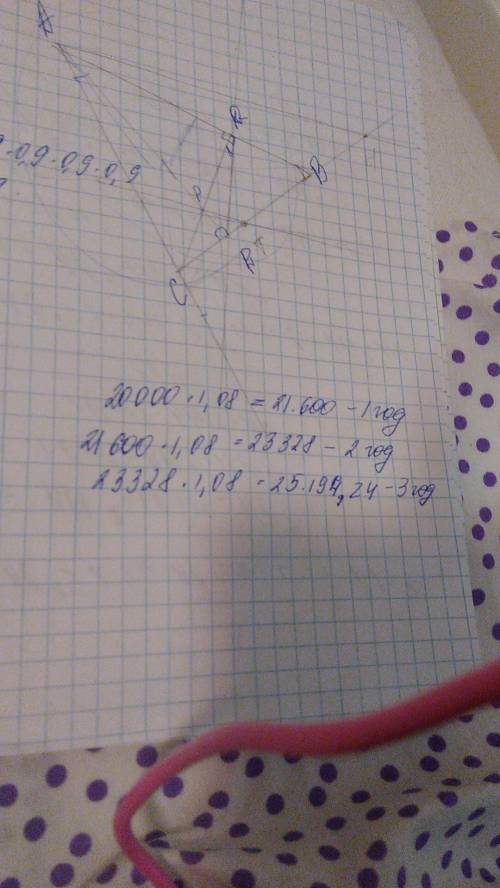 0,9·0,9·0,9
B
C
20000·1,08 = 21.600 – 1 год
21 600·1,08 = 23328 – 2 год
23328·1,08 = 25.194,24 – 3 год